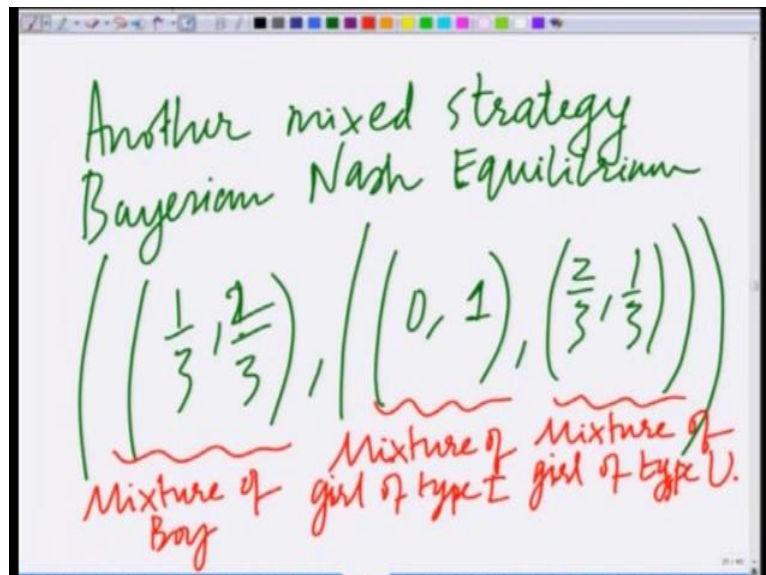 Another mixed strategy
Bayesian Nash Equilibrium
((1/3, 2/3), ((0, 1), (2/3, 1/3)))
Mixture of Boy
Mixture of girl of type I
Mixture of girl of type U.